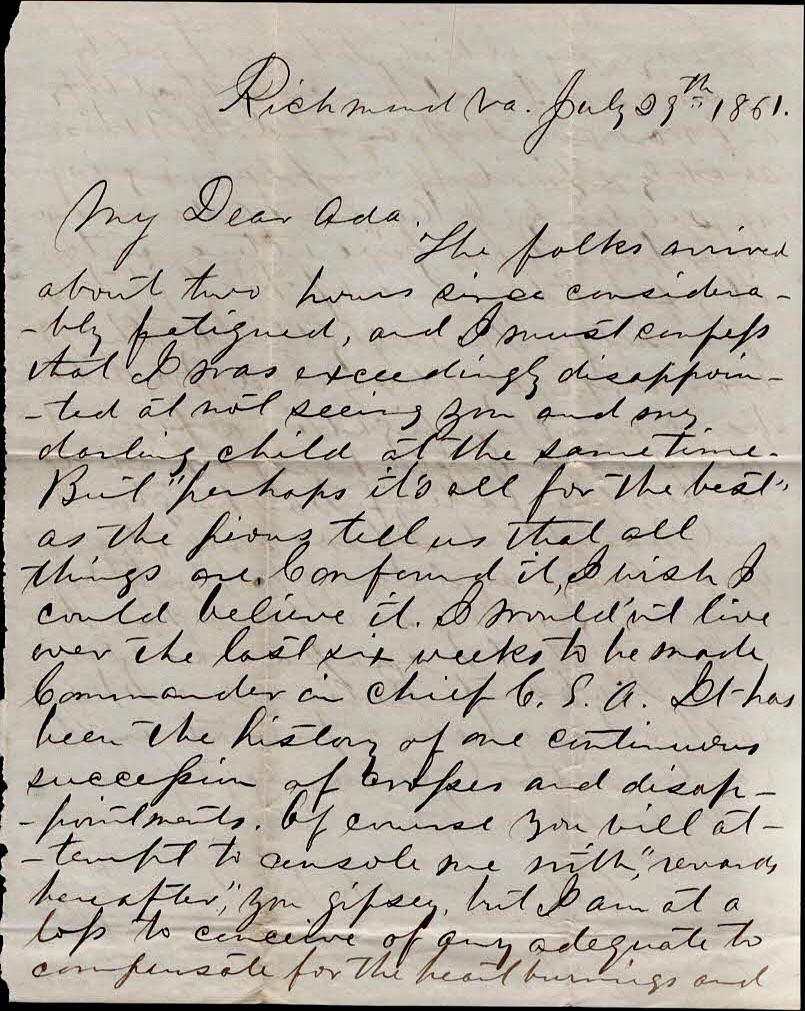 Richmond Va. July 29th 1861.
My Dear Ada.
The folks arrived
about two hours since considera-
-bly fetigued, and I must confess
that I was exceedingly disappoin-
-ted at not seeing you and my
darling child at the same time.
But "perhaps it's all for the best"
as the pious tell us that all
things are. Confound it, I wish I
could believe it. I would'nt live
over the last six weeks to be made
Commander in chief C. S. A. It has
been the history of one continuous
succession of crosses and disap-
-pointments. Of course you will at-
-tempt to console me with, "rewards
hereafter", you gipsey, but I am at a
loss to conceive of any adequate to
compensate for the heart burnings and